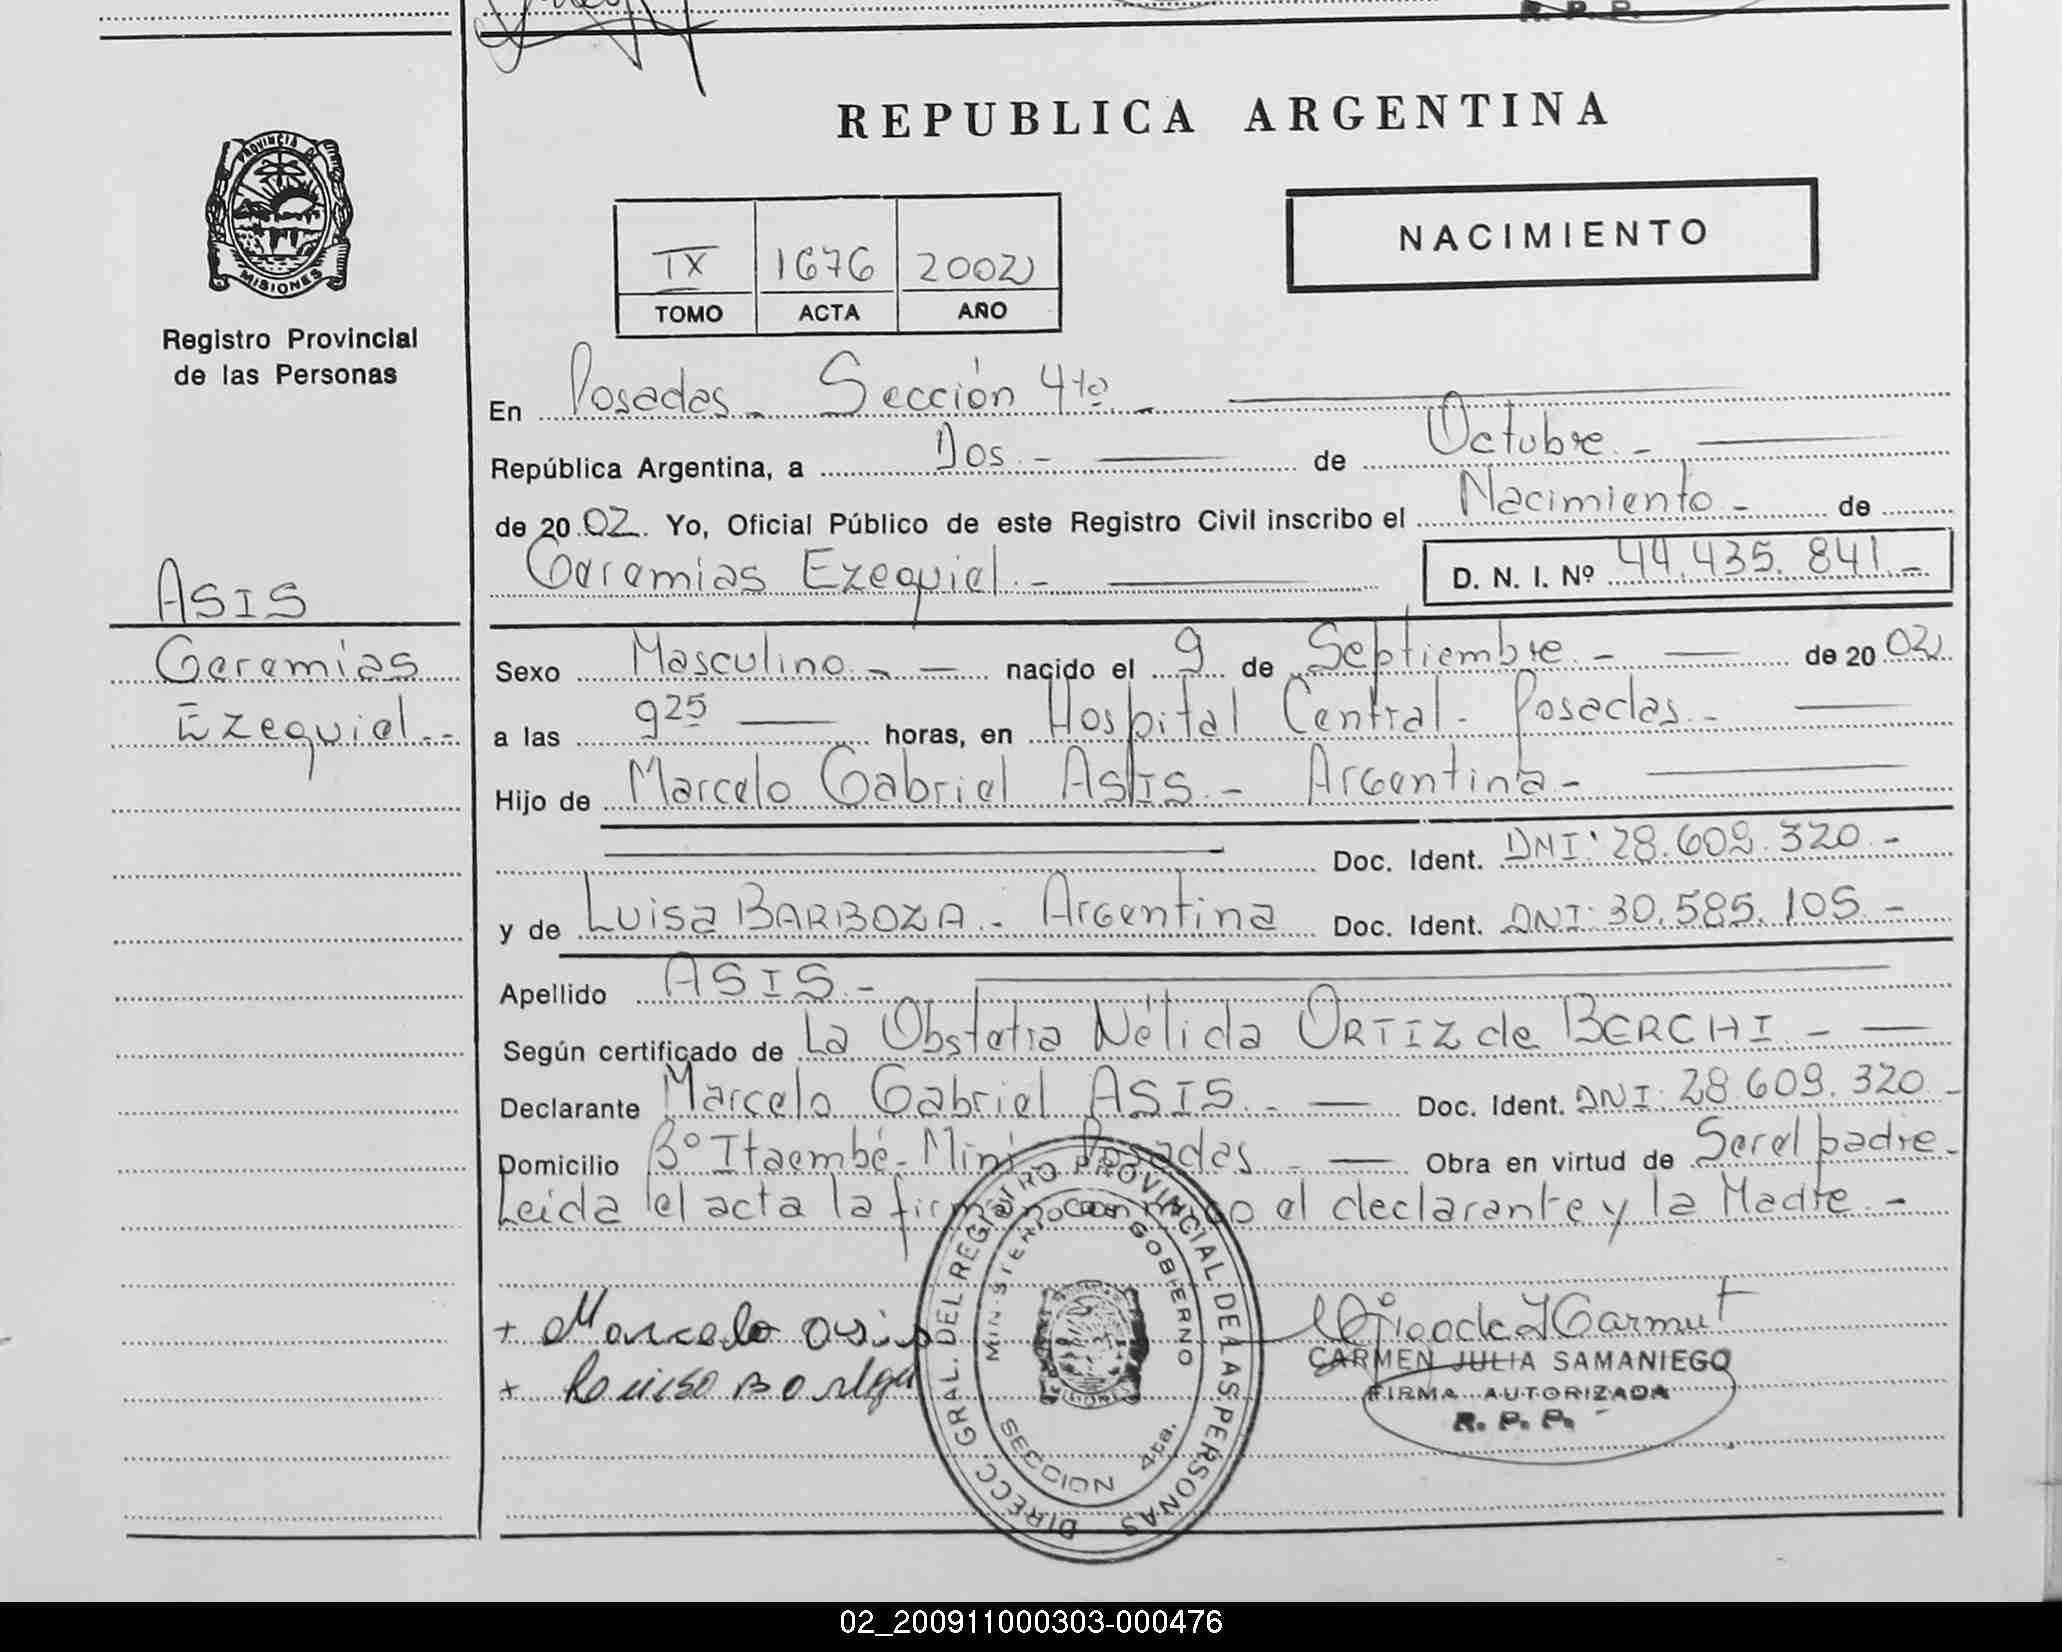 R. P. P.
REPUBLICA ARGENTINA
PROVINCIA DE
MISIONES
Registro Provincial
de las Personas
NACIMIENTO
IX 1676 2002
TOMO ACTA AÑO
En Posadas - Sección 4ta. -
República Argentina, a Dos. - de Octubre. -
de 20 02. Yo, Oficial Público de este Registro Civil inscribo el Nacimiento - de
Geremias Ezequiel. - D. N. I. Nº 44.435.841. -
ASIS
Geremias
Ezequiel. -
Sexo Masculino. - nacido el 9 de Septiembre. - de 20 02
a las 9 25 horas, en Hospital Central - Posadas. -
Hijo de Marcelo Gabriel ASIS. - Argentina -
Doc. Ident. DNI: 28.609.320. -
y de Luisa BARBOZA. - Argentina Doc. Ident. DNI: 30.585.105. -
Apellido ASIS. -
Según certificado de La Obstetra Nélida ORTIZ de BERCHI -
Declarante Marcelo Gabriel ASIS. - Doc. Ident. DNI: 28.609.320 -
Domicilio Bº Itaembé - Mini - Posadas - Obra en virtud de Ser el padre -
Leida el acta la firman conmigo el declarante y la Madre. -
+ Marcelo asis
+
CARMEN JULIA SAMANIEGO
FIRMA AUTORIZADA
R. P. P.
DIRECC. GRAL. DEL REGISTRO PROVINCIAL DE LAS PERSONAS
MINISTERIO DE GOBIERNO
MISIONES
SECCION 4ta.
02_200911000303-000476